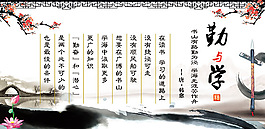 勤与学
书山有路勤为径 学海无涯苦作舟
—韩愈
在读书、学习的道路上
没有捷径可走
没有顺风船可驶
想要在广博的书山
学海中汲取更多
更广的知识
“勤奋”和“潜心”
是两个必不可少的
也是最佳的条件